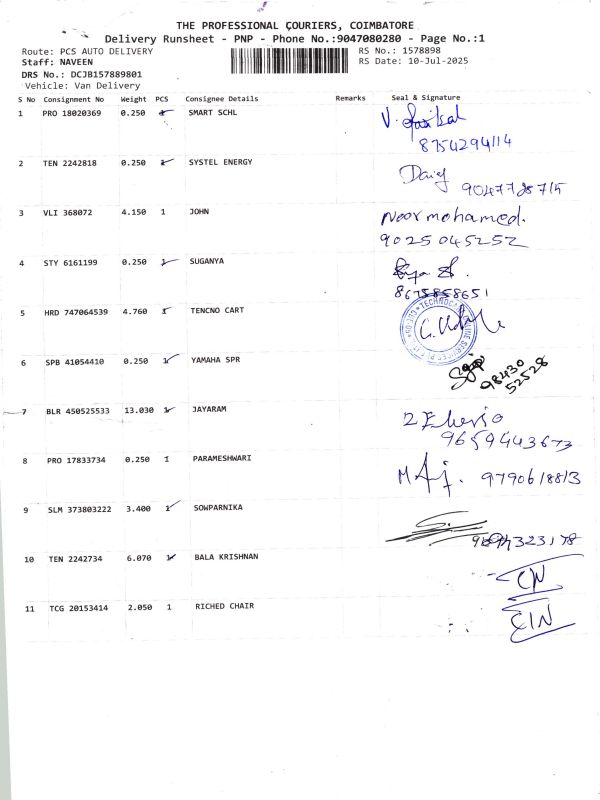 THE PROFESSIONAL COURIERS, COIMBATORE
Delivery Runsheet - PNP - Phone No.:9047080280 - Page No.:1
Route: PCS AUTO DELIVERY RS No.: 1578898
Staff: NAVEEN RS Date: 10-Jul-2025
DRS No.: DCJB157889801
Vehicle: Van Delivery
S No Consignment No Weight PCS Consignee Details Remarks Seal & Signature
1 PRO 18020369 0.250 1 SMART SCHL
8754294114
2 TEN 2242818 0.250 1 SYSTEL ENERGY
9047728715
3 VLI 368072 4.150 1 JOHN Noor mohamed.
9025045252
4 STY 6161199 0.250 1 SUGANYA
8675858651
5 HRD 747064539 4.760 1 TENCNO CART
6 SPB 41054410 0.250 1 YAMAHA SPR
98430
52528
7 BLR 450525533 13.030 1 JAYARAM
9659443673
8 PRO 17833734 0.250 1 PARAMESHWARI
9790618813
9 SLM 373803222 3.400 1 SOWPARNIKA
10 TEN 2242734 6.070 1 BALA KRISHNAN
11 TCG 20153414 2.050 1 RICHED CHAIR